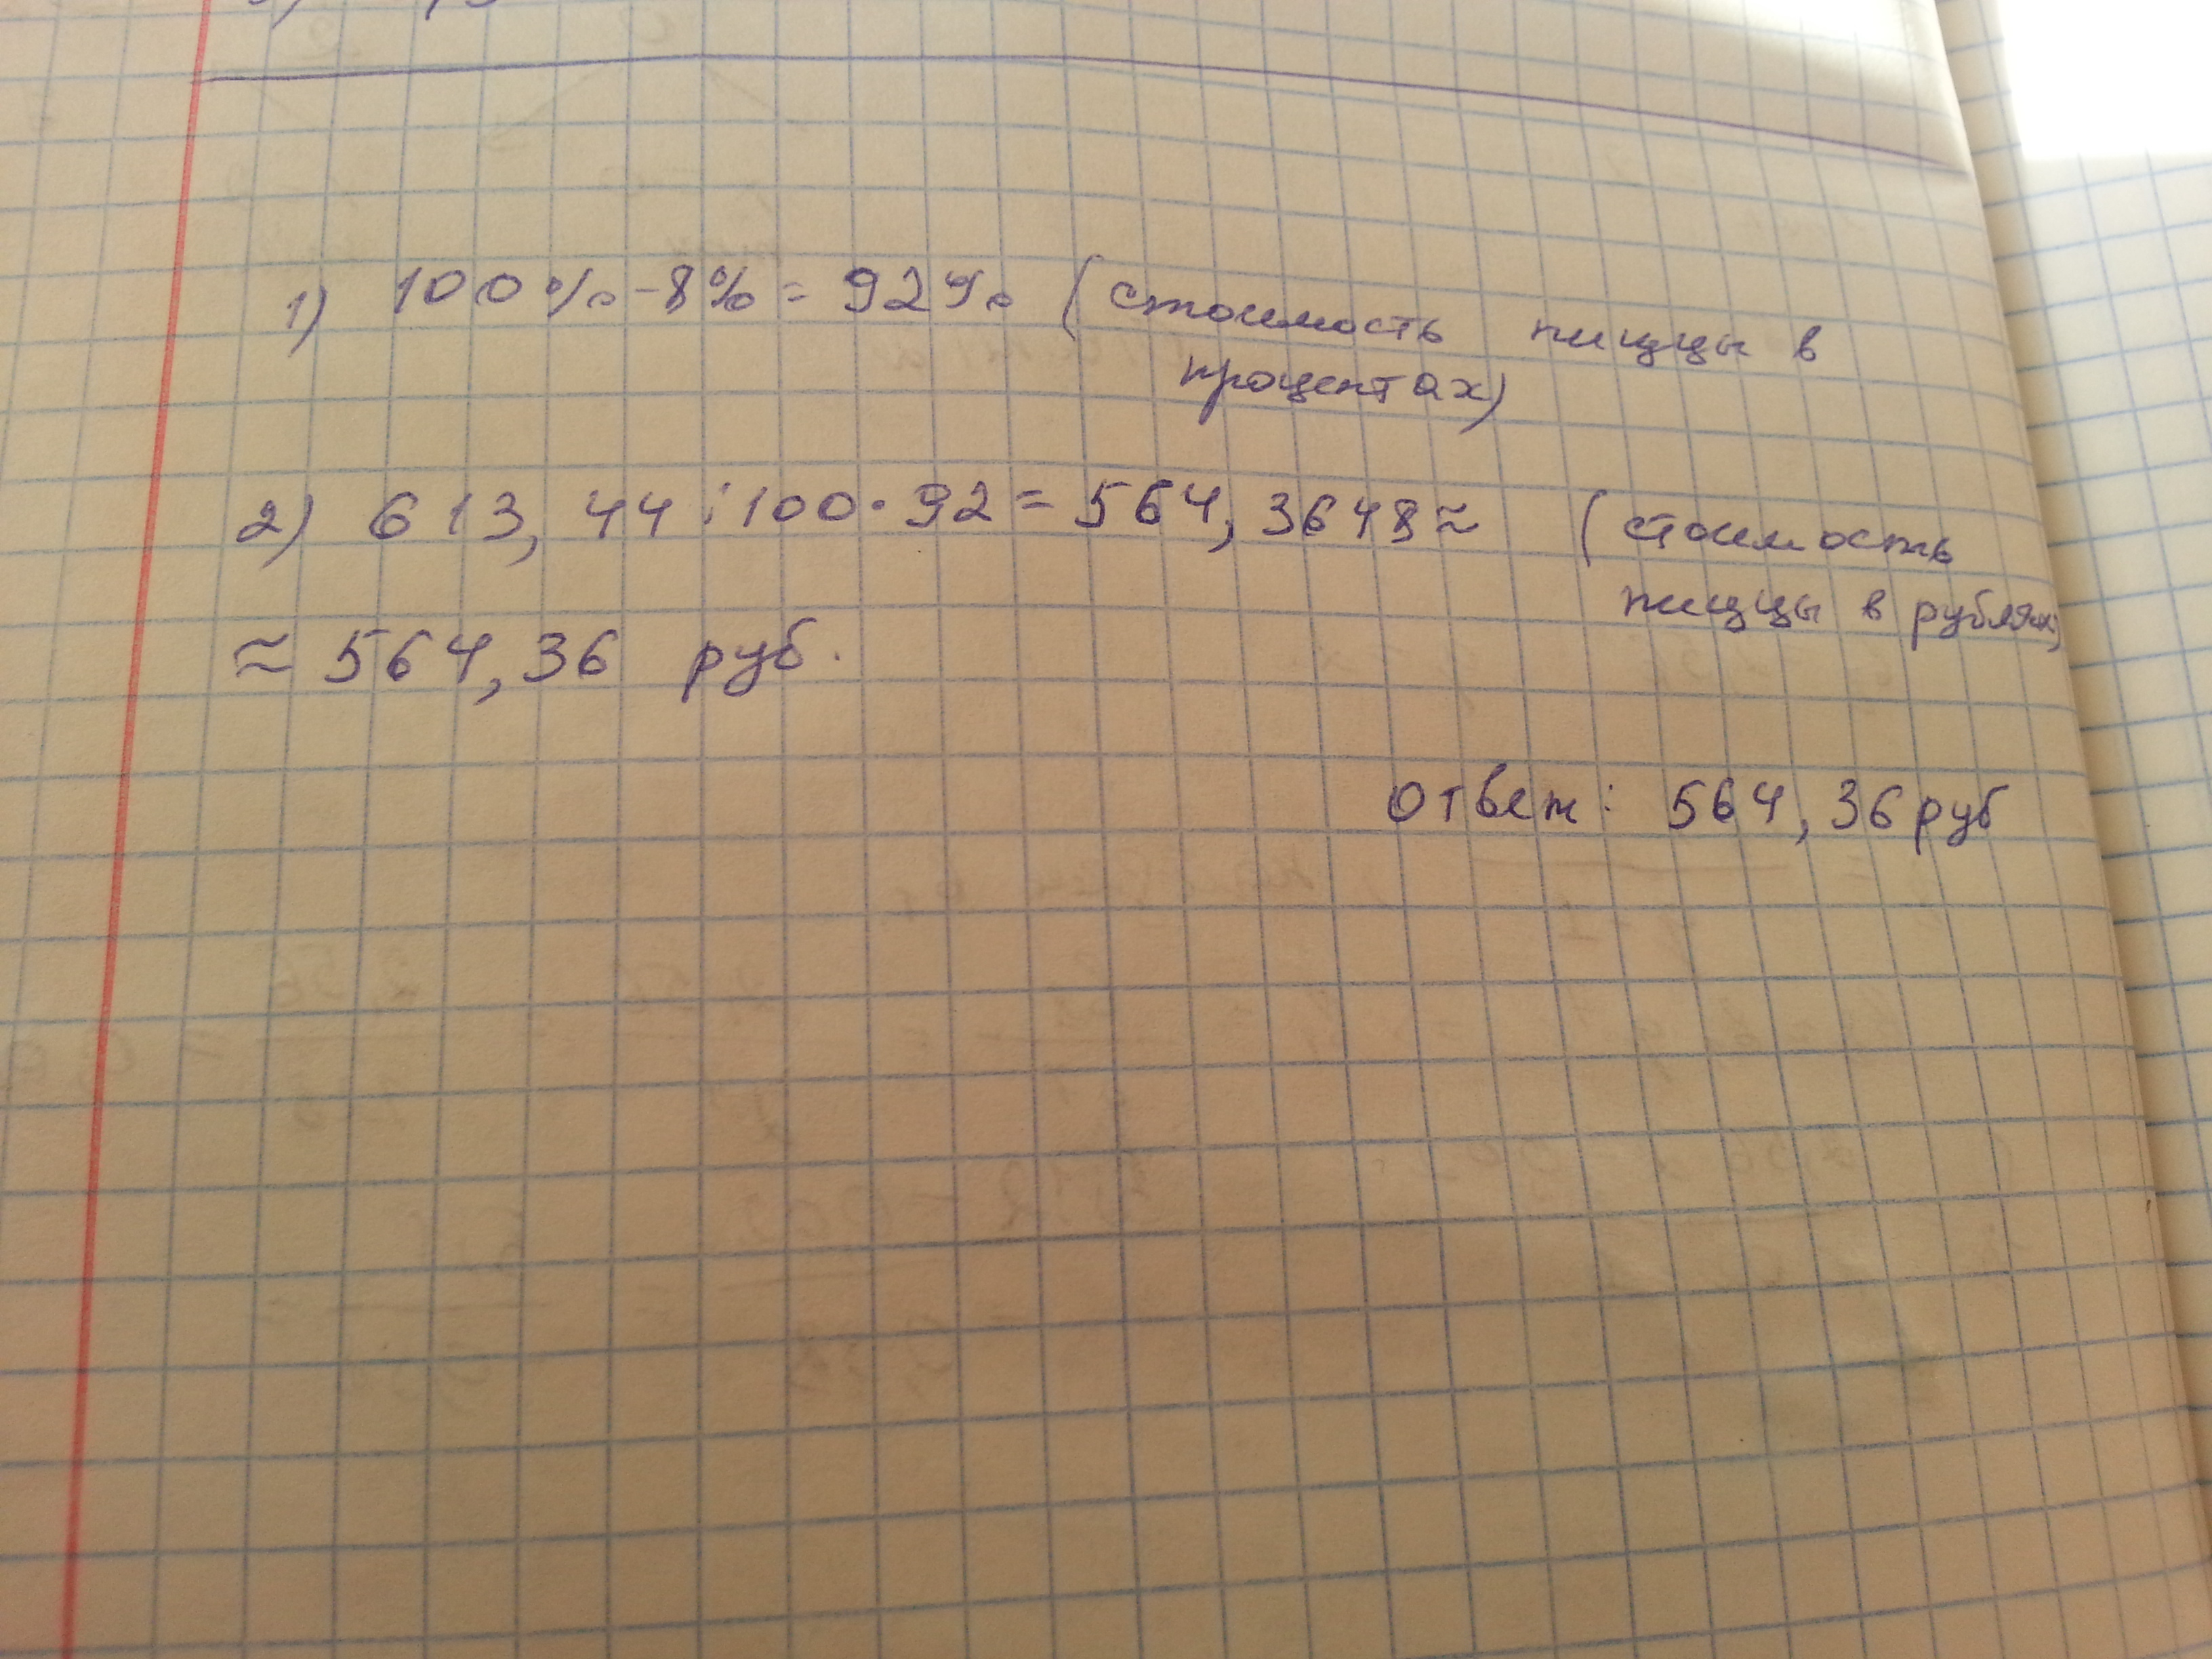 1) 100% - 8% = 92% (стоимость пиццы в
процентах)
2) 613,44 : 100 · 92 = 564,3648 ≈ (стоимость
пиццы в рублях)
≈ 564,36 руб.
Ответ: 564,36 руб